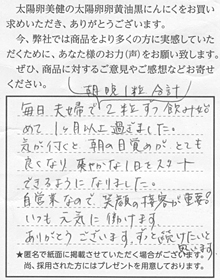 太陽卵美健の太陽卵卵黄油黒にんにくをお買い
求めいただき、ありがとうございます。
今、弊社では商品をより多くの方に実感していた
だくために、あなた様のお力(声)をお願い致します。
ぜひ、商品に対するご意見やご感想などお寄せ
ください。
朝晩1粒合計
毎日夫婦で2粒ずつ飲みはじ
めて1ヶ月以上過ぎました。
気が付くと、朝の目覚めがとても
良くなり爽やかな1日をスタート
できるようになりました。
自営業なので、笑顔の接客が重要!
いつも元気に働けます。
ありがとうございます。ずっと続けたいと
思います
★匿名で紙面に掲載させていただく場合がございます。
尚、採用された方にはプレゼントを用意しております。